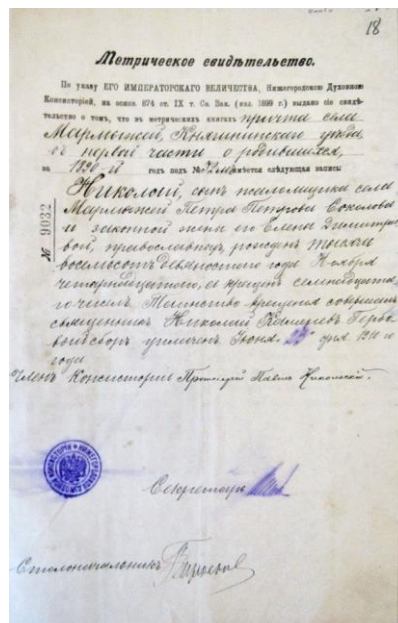 18
Метрическое свидѣтельство.
По указу ЕГО ИМПЕРАТОРСКАГО ВЕЛИЧЕСТВА, Нижегородскою Духовною
Консисторіей, на основ. 874 ст. IX т. Св. Зак. (изд. 1899 г.) выдано сіе свидѣ-
тельство о томъ, что въ метрическихъ книгахъ причта села
Мармыжей, Княгининскаго уѣзда
въ первой части о родившихся,
за 1890 й годъ подъ № имѣется слѣдующая запись:
Николай, сынъ псаломщика села
Мармыжей Петра Петрова Соколова
и законной жены его Елены Димитріе-
вой, православной, рожденъ тысяча
восемьсотъ девяностаго года Ноября
четырнадцатаго, а крещенъ семнадцата-
го чиселъ. Таинство крещенія совершилъ
священникъ Николай Гербо-
вый сборъ уплаченъ Іюня дня 1910 г
года
Членъ Консисторіи Протоіерей Павелъ
№ 9032
Секретарь
Столоначальникъ